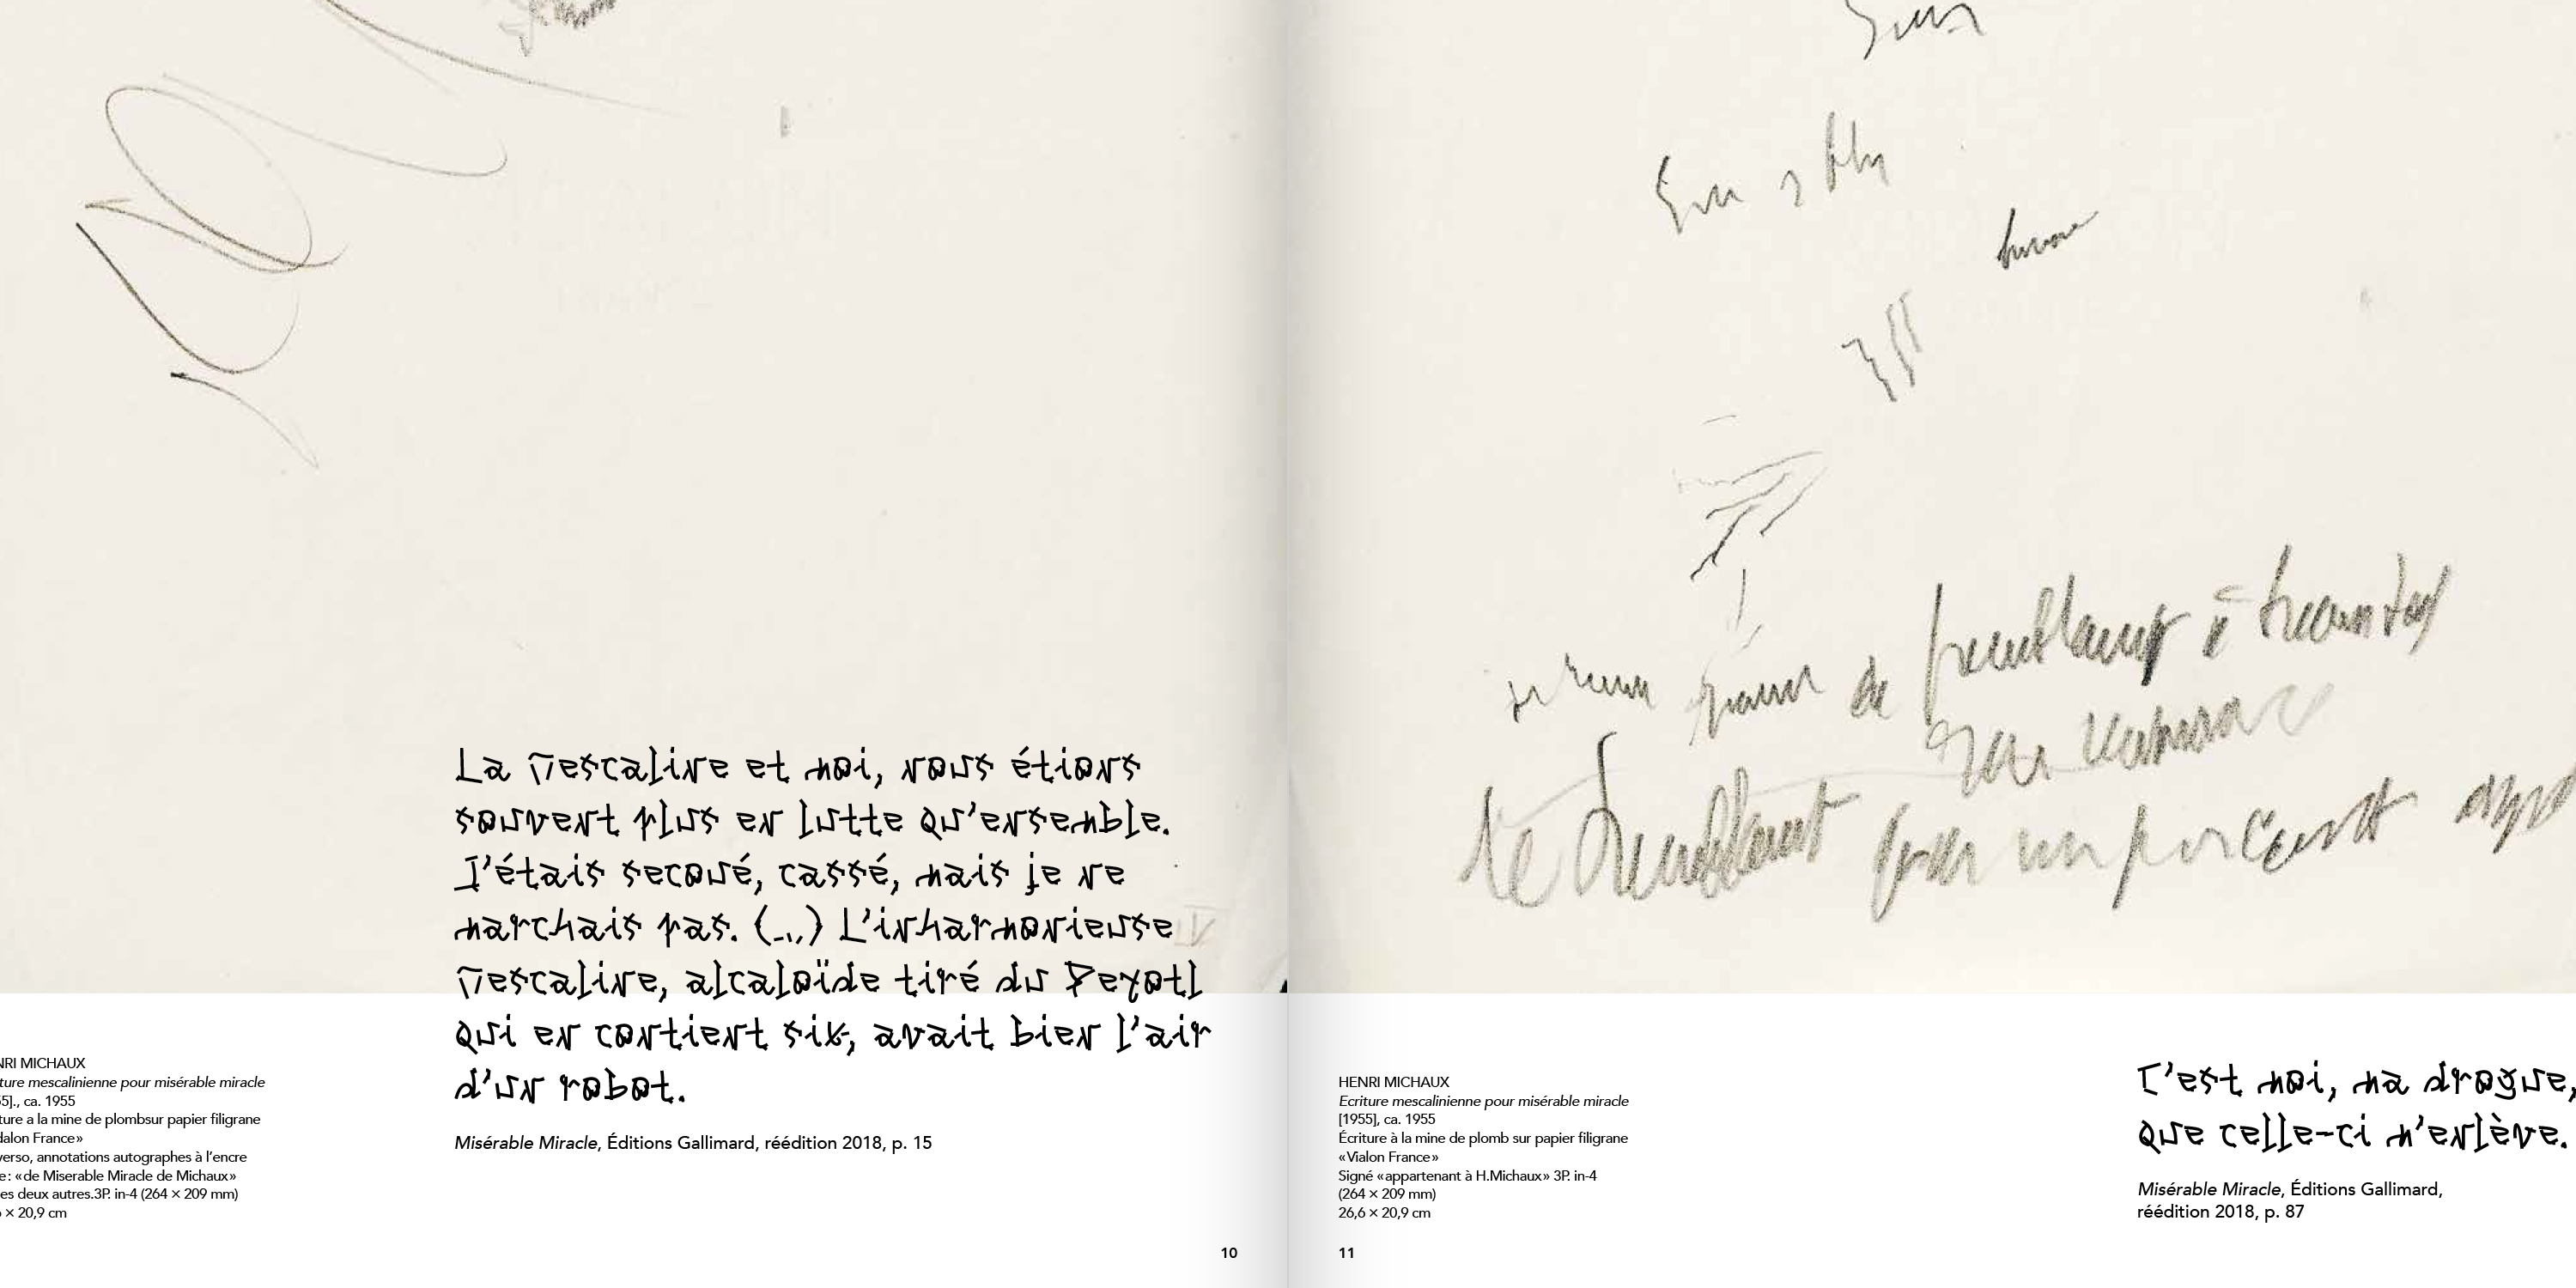 La Mescaline et moi, nous étions
souvent plus en lutte qu'ensemble.
J'étais secoué, cassé, mais je ne
marchais pas. (...) L'inharmonieuse
Mescaline, alcaloïde tiré du Peyotl
qui en contient six, avait bien l'air
d'un robot.
Misérable Miracle, Éditions Gallimard, réédition 2018, p. 15
NRI MICHAUX
ture mescalinienne pour misérable miracle
55]., ca. 1955
ture a la mine de plombsur papier filigrane
dalon France»
verso, annotations autographes à l'encre
e : «de Miserable Miracle de Michaux»
es deux autres.3P. in-4 (264 × 209 mm)
6 × 20,9 cm
10
HENRI MICHAUX
Ecriture mescalinienne pour misérable miracle
[1955], ca. 1955
Écriture à la mine de plomb sur papier filigrane
«Vialon France»
Signé «appartenant à H.Michaux» 3P. in-4
(264 × 209 mm)
26,6 × 20,9 cm
11
C'est moi, ma drogue,
que celle-ci m'enlève.
Misérable Miracle, Éditions Gallimard,
réédition 2018, p. 87